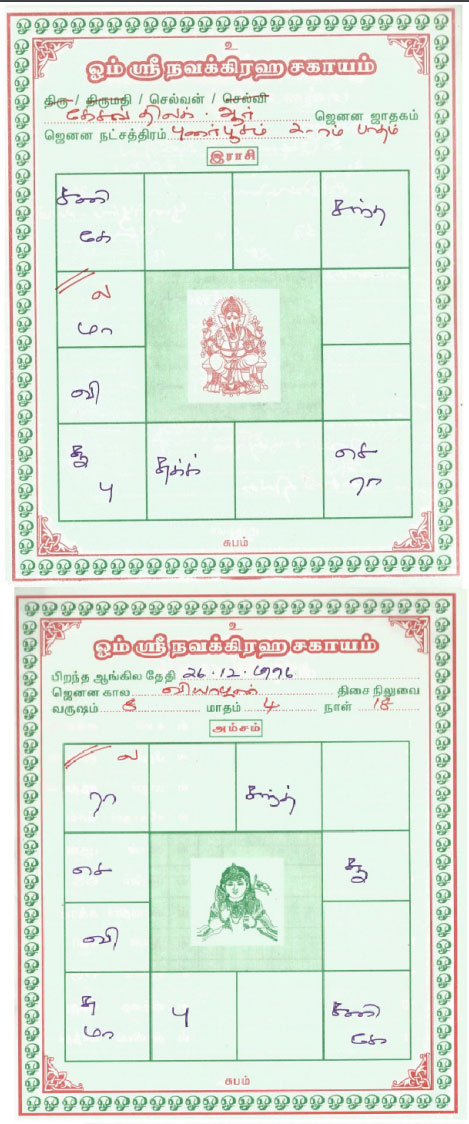 உ
ஓம் ஸ்ரீ நவக்கிரஹ சகாயம்
திரு / திருமதி / செல்வன் / செல்வி
கேசவ திலக் . ஆர் ஜெனன ஜாதகம்
ஜெனன நட்சத்திரம் புனர்பூசம் 2-ம் பாதம்
இராசி
சனி சந்த்
கே
ல
மா
வி
சூ சுக் செ
பு ரா
சுபம்
உ
ஓம் ஸ்ரீ நவக்கிரஹ சகாயம்
பிறந்த ஆங்கில தேதி 26.12.1996
ஜெனன கால வியாழன் திசை நிலுவை
வருஷம் 8 மாதம் 4 நாள் 18
அம்சம்
ல
ரா சந்த்
செ சூ
வி
சு பு சனி
மா கே
சுபம்